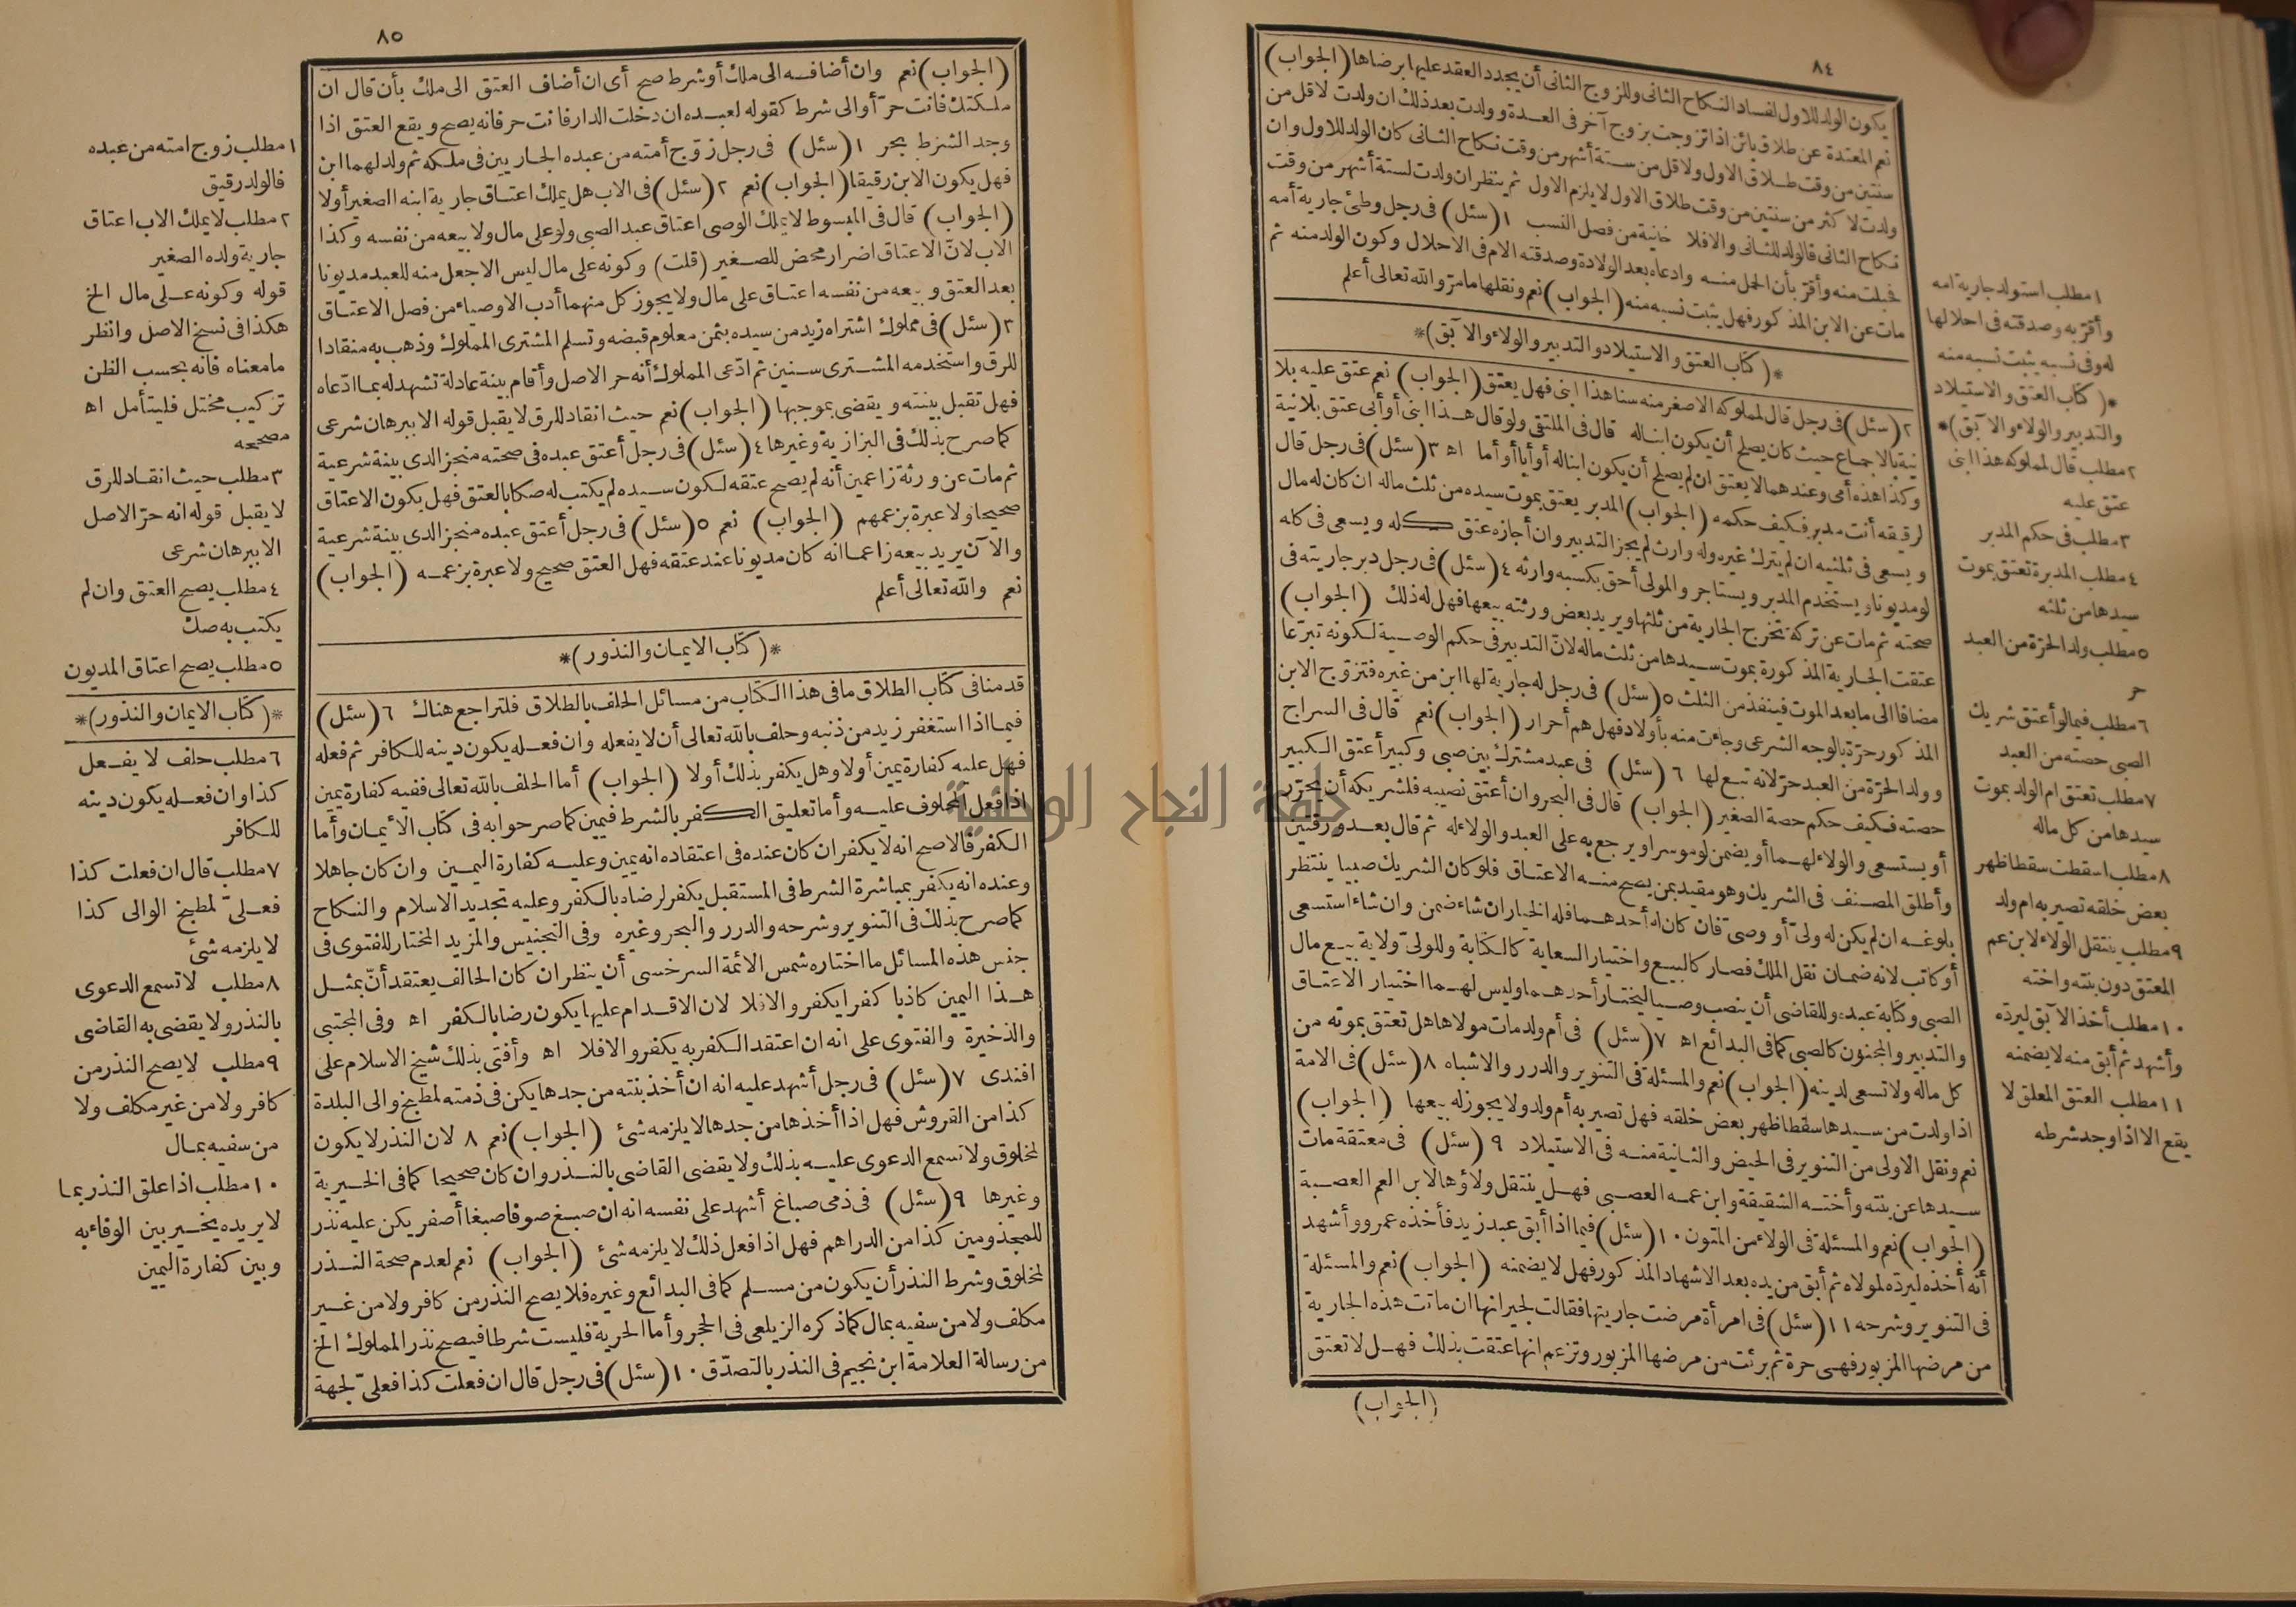 ٨٤
يكون الولد للاول لفساد النكاح الثانى وللزوج الثانى أن يجدد العقد عليها برضاها (الجواب)
نعم المعتدة عن طلاق بائن اذا تزوجت بزوج آخر فى العدة وولدت بعد ذلك ان ولدت لاقل من
سنتين من وقت طلاق الاول ولاقل من ستة أشهر من وقت نكاح الثانى كان الولد للاول وان
ولدت لاكثر من سنتين من وقت طلاق الاول لا يلزم الاول ثم ينظر ان ولدت لستة أشهر من وقت
نكاح الثانى فالولد للثانى والا فلا خانية من فصل النسب ١ (سئل) فى رجل وطئ جارية أمه
فحبلت منه وأقر بأن الحمل منه وادعاه بعد الولادة وصدقته الام فى الاحلال وكون الولد منه ثم
مات عن الابن المذكور فهل يثبت نسبه منه (الجواب) نعم ونقلها ما مر والله تعالى أعلم
*(كتاب العتق والاستيلاد والتدبير والولاء والآبق)*
٢ (سئل) فى رجل قال لمملوكه الاصغر منه سنا هذا ابنى فهل يعتق (الجواب) نعم عتق عليه بلا
نية بالاجماع حيث كان يصلح أن يكون ابنا له قال فى الملتقى ولو قال هذا ابنى أو أبى عتق بلا نية
وكذا هذه أمى وعندهما لا يعتق ان لم يصلح أن يكون ابنا له أو أبا أو أما اه ٣ (سئل) فى رجل قال
لرقيقه أنت مدبر فكيف حكمه (الجواب) المدبر يعتق بموت سيده من ثلث ماله ان كان له مال
ويسعى فى ثلثيه ان لم يترك غيره وله وارث لم يجز التدبير وان أجازه عتق كله ويسعى فى كله
لو مديونا ويستخدم المدبر ويستاجر والمولى أحق بكسبه وارثه ٤ (سئل) فى رجل دبر جاريته فى
صحته ثم مات عن تركة تخرج الجارية من ثلثها ويريد بعض ورثته بيعها فهل له ذلك (الجواب)
عتقت الجارية المذكورة بموت سيدها من ثلث ماله لان التدبير فى حكم الوصية لكونه تبرعا
مضافا الى ما بعد الموت فينفذ من الثلث ٥ (سئل) فى رجل له جارية لها ابن من غيره فتزوج الابن
المذكور حرة بالوجه الشرعى وجاءت منه بأولاد فهل هم أحرار (الجواب) نعم قال فى السراج
وولد الحرة من العبد حر لانه تبع لها ٦ (سئل) فى عبد مشترك بين صبى وكبير أعتق الكبير
حصته فكيف حكم حصة الصغير (الجواب) قال فى البحر وان أعتق نصيبه فلشريكه أن يحرر
أو يستسعى والولاء لهما أو يضمن لو موسرا ويرجع به على العبد والولاء له ثم قال بعد ورقتين
وأطلق المصنف فى الشريك وهو مقيد بمن يصح منه الاعتاق فلو كان الشريك صبيا ينتظر
بلوغه ان لم يكن له ولى أو وصى فان كان له أحدهما فله الخيار ان شاء ضمن وان شاء استسعى
أو كاتب لانه ضمان نقل الملك فصار كالبيع واختيار السعاية كالكتابة وللولى ولاية بيع مال
الصبى وكتابة عبده وللقاضى أن ينصب وصيا ليختار أحدهما وليس لهما اختيار الاعتاق
والتدبير والمجنون كالصبى كما فى البدائع اه ٧ (سئل) فى أم ولد مات مولاها هل تعتق بموته من
كل ماله ولا تسعى لدينه (الجواب) نعم والمسئلة فى التنوير والدرر والاشباه ٨ (سئل) فى الامة
اذا ولدت من سيدها سقطا ظهر بعض خلقه فهل تصير به أم ولد ولا يجوز له بيعها (الجواب)
نعم ونقل الاولى من التنوير فى الحيض والثانية منه فى الاستيلاد ٩ (سئل) فى معتقة مات
سيدها عن بنته وأخته الشقيقة وابن عمه العصبى فهل ينتقل ولاؤها لابن العم العصبة
(الجواب) نعم والمسئلة فى الولاء من المتون ١٠ (سئل) فيما اذا أبق عبد زيد فأخذه عمرو وأشهد
أنه أخذه ليرده لمولاه ثم أبق من يده بعد الاشهاد المذكور فهل لا يضمنه (الجواب) نعم والمسئلة
فى التنوير وشرحه ١١ (سئل) فى امرأة مرضت جاريتها فقالت لجيرانها ان ماتت هذه الجارية
من مرضها المزبور فهى حرة ثم برئت من مرضها المزبور وتزعم انها عتقت بذلك فهل لا تعتق
(الجواب)
١ مطلب استولد جارية امه
وأقر به وصدقته فى احلالها
له وفى نسبه يثبت نسبه منه
*(كتاب العتق والاستيلاد
والتدبير والولاء والآبق)*
٢ مطلب قال لمملوكه هذا ابنى
عتق عليه
٣ مطلب فى حكم المدبر
٤ مطلب المدبرة تعتق بموت
سيدها من ثلثه
٥ مطلب ولد الحرة من العبد
حر
٦ مطلب فيما لو أعتق شريك
الصبى حصته من العبد
٧ مطلب تعتق ام الولد بموت
سيدها من كل ماله
٨ مطلب اسقطت سقطا ظهر
بعض خلقه تصير به ام ولد
٩ مطلب ينتقل الولاء لابن عم
المعتق دون بنته واخته
١٠ مطلب أخذ الآبق ليرده
وأشهد ثم أبق منه لا يضمنه
١١ مطلب العتق المعلق لا
يقع الا اذا وجد شرطه
٨٥
(الجواب) نعم وان أضافه الى ملك أو شرط صح أى ان أضاف العتق الى ملك بأن قال ان
ملكتك فانت حر أو الى شرط كقوله لعبده ان دخلت الدار فانت حر فانه يصح ويقع العتق اذا
وجد الشرط بحر ١ (سئل) فى رجل زوج أمته من عبده الجاريين فى ملكه ثم ولد لهما ابن
فهل يكون الابن رقيقا (الجواب) نعم ٢ (سئل) فى الاب هل يملك اعتاق جارية ابنه الصغير أو لا
(الجواب) قال فى المبسوط لا يملك الوصى اعتاق عبد الصبى ولو على مال ولا بيعه من نفسه وكذا
الاب لان الاعتاق اضرار محض للصغير (قلت) وكونه على مال ليس الا جعل منه للعبد مديونا
بعد العتق وبيعه من نفسه اعتاق على مال ولا يجوز كل منهما أدب الاوصياء من فصل الاعتاق
٣ (سئل) فى مملوك اشتراه زيد من سيده بثمن معلوم قبضه وتسلم المشترى المملوك وذهب به منقادا
للرق واستخدمه المشترى سنين ثم ادعى المملوك أنه حر الاصل وأقام بينة عادلة تشهد له بما ادعاه
فهل تقبل بينته ويقضى بموجبها (الجواب) نعم حيث انقاد للرق لا يقبل قوله الا ببرهان شرعى
كما صرح بذلك فى البزازية وغيرها ٤ (سئل) فى رجل أعتق عبده فى صحته منجزا لدى بينة شرعية
ثم مات عن ورثة زاعمين أنه لم يصح عتقه لكون سيده لم يكتب له صكا بالعتق فهل يكون الاعتاق
صحيحا ولا عبرة بزعمهم (الجواب) نعم ٥ (سئل) فى رجل أعتق عبده منجزا لدى بينة شرعية
والآن يريد بيعه زاعما انه كان مديونا عند عتقه فهل العتق صحيح ولا عبرة بزعمه (الجواب)
نعم والله تعالى أعلم
*(كتاب الايمان والنذور)*
قدمنا فى كتاب الطلاق ما فى هذا الكتاب من مسائل الحلف بالطلاق فلتراجع هناك ٦ (سئل)
فيما اذا استغفر زيد من ذنبه وحلف بالله تعالى أن لا يفعله وان فعله يكون دينه للكافر ثم فعله
فهل عليه كفارة يمين أو لا وهل يكفر بذلك أو لا (الجواب) أما الحلف بالله تعالى ففيه كفارة يمين
اذا فعل المحلوف عليه وأما تعليق الكفر بالشرط فيمين كما صرحوا به فى كتاب الأيمان وأما
الكفر فالاصح انه لا يكفر ان كان عنده فى اعتقاده انه يمين وعليه كفارة اليمين وان كان جاهلا
وعنده انه يكفر بمباشرة الشرط فى المستقبل يكفر لرضاه بالكفر وعليه تجديد الاسلام والنكاح
كما صرح بذلك فى التنوير وشرحه والدرر والبحر وغيره وفى التجنيس والمزيد المختار للفتوى فى
جنس هذه المسائل ما اختاره شمس الائمة السرخسى أن ينظر ان كان الحالف يعتقد أن بمثل
هذا اليمين كاذبا كفر ايكفر والا فلا لان الاقدام عليها يكون رضا بالكفر اه وفى المجتبى
والذخيرة والفتوى على انه ان اعتقد الكفر به يكفر والا فلا اه وأفتى بذلك شيخ الاسلام على
افندى ٧ (سئل) فى رجل أشهد عليه انه ان أخذ بنته من جدها يكن فى ذمته لمطبخ والى البلدة
كذا من القروش فهل اذا أخذها من جدها لا يلزمه شئ (الجواب) نعم ٨ لان النذر لا يكون
لمخلوق ولا تسمع الدعوى عليه بذلك ولا يقضى القاضى بالنذر وان كان صحيحا كما فى الخيرية
وغيرها ٩ (سئل) فى ذمى صباغ أشهد على نفسه انه ان صبغ صوفا صبغا أصفر يكن عليه نذر
للمجذومين كذا من الدراهم فهل اذا فعل ذلك لا يلزمه شئ (الجواب) نعم لعدم صحة النذر
لمخلوق وشرط النذر أن يكون من مسلم كما فى البدائع وغيره فلا يصح النذر من كافر ولا من غير
مكلف ولا من سفيه بمال كما ذكره الزيلعى فى الحجر وأما الحرية فليست شرطا فيصح نذر المملوك الخ
من رسالة العلامة ابن نجيم فى النذر بالتصدق ١٠ (سئل) فى رجل قال ان فعلت كذا فعلى لجهة
١ مطلب زوج امته من عبده
فالولد رقيق
٢ مطلب لا يملك الاب اعتاق
جارية ولده الصغير
قوله وكونه على مال الخ
هكذا فى نسخ الاصل وانظر
ما معناه فانه بحسب الظن
تركيب مختل فليتأمل اه
مصححه
٣ مطلب حيث انقاد للرق
لا يقبل قوله انه حر الاصل
الا ببرهان شرعى
٤ مطلب يصح العتق وان لم
يكتب به صك
٥ مطلب يصح اعتاق المديون
*(كتاب الايمان والنذور)*
٦ مطلب حلف لا يفعل
كذا وان فعله يكون دينه
للكافر
٧ مطلب قال ان فعلت كذا
فعلى لمطبخ الوالى كذا
لا يلزمه شئ
٨ مطلب لا تسمع الدعوى
بالنذر ولا يقضى به القاضى
٩ مطلب لا يصح النذر من
كافر ولا من غير مكلف ولا
من سفيه بمال
١٠ مطلب اذا علق النذر بما
لا يريده يخير بين الوفاء به
وبين كفارة اليمين
جامعة النجاح الوطنية